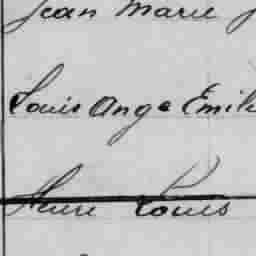 Jean Marie
Louis Ange Emile
Henri Louis